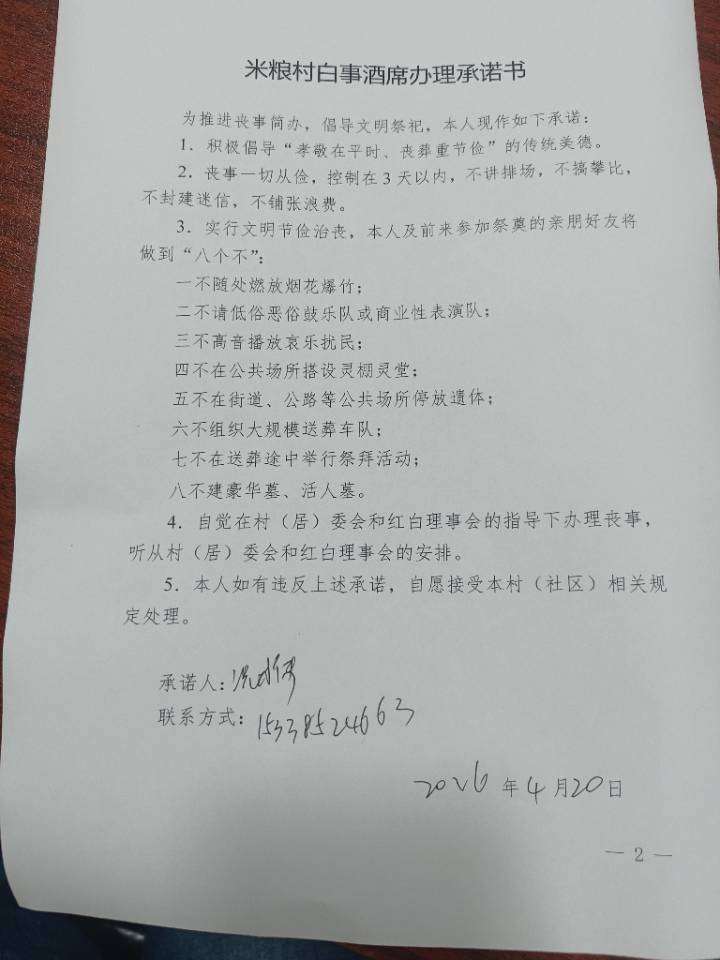 米粮村白事酒席办理承诺书
为推进丧事简办，倡导文明祭祀，本人现作如下承诺：
1．积极倡导“孝敬在平时、丧葬重节俭”的传统美德。
2．丧事一切从俭，控制在3天以内，不讲排场，不搞攀比，
不封建迷信，不铺张浪费。
3．实行文明节俭治丧，本人及前来参加祭奠的亲朋好友将
做到“八个不”：
一不随处燃放烟花爆竹；
二不请低俗恶俗鼓乐队或商业性表演队；
三不高音播放哀乐扰民；
四不在公共场所搭设灵棚灵堂；
五不在街道、公路等公共场所停放遗体；
六不组织大规模送葬车队；
七不在送葬途中举行祭拜活动；
八不建豪华墓、活人墓。
4．自觉在村（居）委会和红白理事会的指导下办理丧事，
听从村（居）委会和红白理事会的安排。
5．本人如有违反上述承诺，自愿接受本村（社区）相关规
定处理。
承诺人：
联系方式：15338524663
2026年4月20日
— 2 —